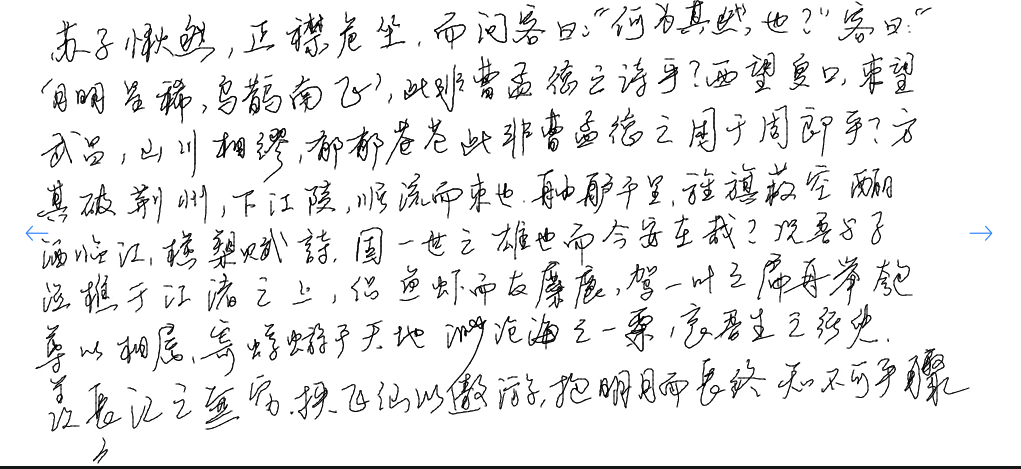 苏子愀然,正襟危坐,而问客曰:“何为其然也?”客曰:“
‘月明星稀,乌鹊南飞’,此非曹孟德之诗乎?西望夏口,東望
武昌,山川相缪,郁郁苍苍此非曹孟德之困于周郎乎?方
其破荆州,下江陵,顺流而東也.舳舻千里,旌旗蔽空酾
酒临江,横槊赋詩,固一世之雄也而今安在哉?况吾与子
渔樵于江渚之上,侣鱼虾而友麋鹿,驾一叶之扁舟举匏
尊以相属,寄蜉蝣于天地渺沧海之一粟,哀吾生之须臾.
羡長江之無穷.挟飞仙以遨游,抱明月而長终知不可乎骤